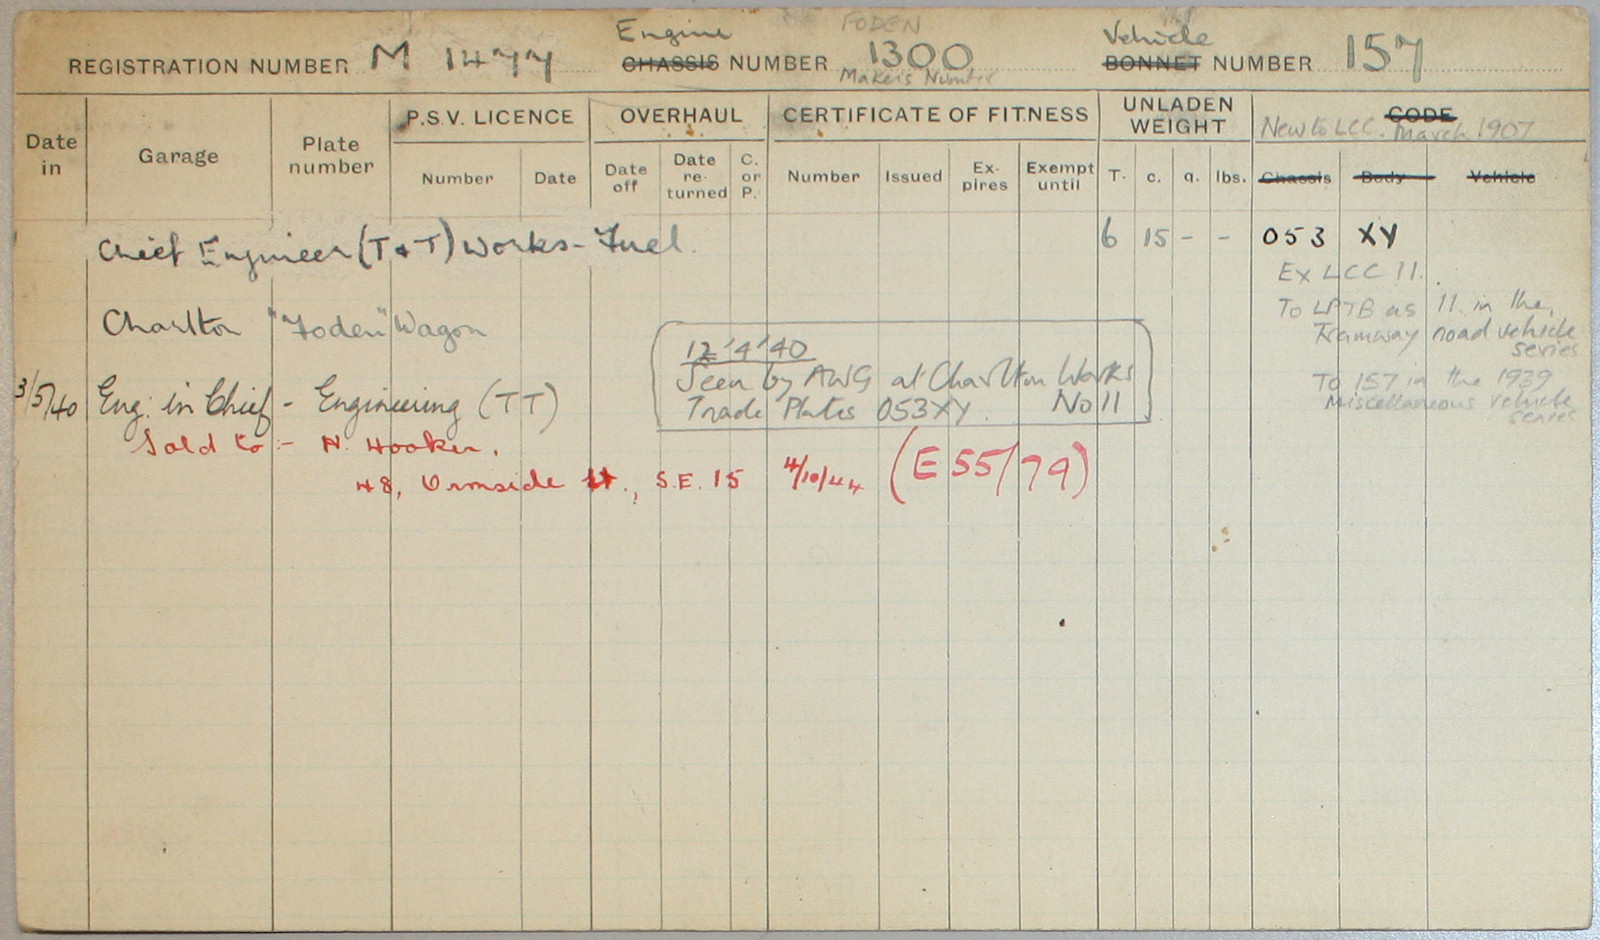 Engine FODEN Vehicle
REGISTRATION NUMBER M 1477 CHASSIS NUMBER 1300 BONNET NUMBER 157
Makers Number
Date in Garage Plate number P.S.V. LICENCE OVERHAUL CERTIFICATE OF FITNESS UNLADEN WEIGHT CODE
New to LCC. March 1907
Number Date Date off Date re-turned C. or P. Number Issued Ex-pires Exempt until T. c. q. lbs. Chassis Body Vehicle
Chief Engineer (T & T) Works - Fuel. 6 15 - - 053 XY
Ex LCC 11.
Charlton "Foden" Wagon
To LPTB as 11 in the
Tramway road vehicle
series
12/4/40
Seen by AWG at Charlton Works
Trade Plates 053XY. No 11
To 157 in the 1939
Miscellaneous vehicle
series
3/5/40 Eng. in Chief - Engineering (TT)
Sold to :- H. Hooker.
48, Ormside St., S.E. 15 4/10/44 (E55/79)